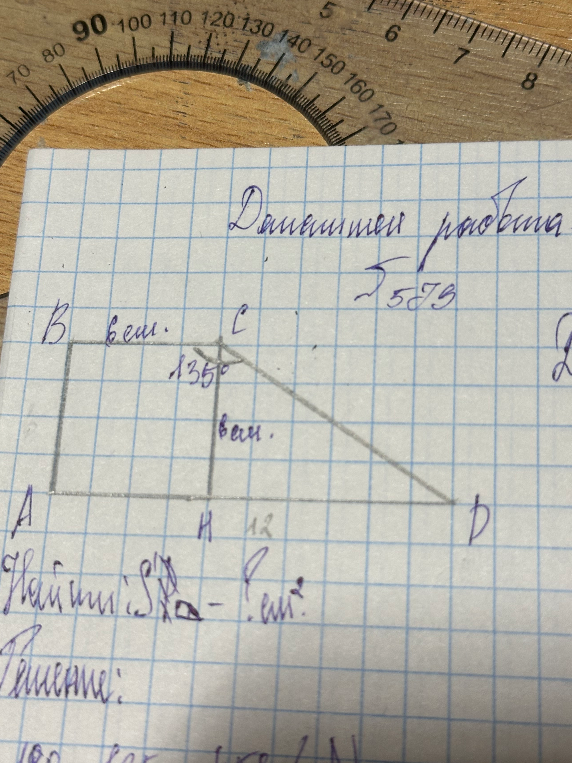 70 80 90 100 110 120 130 140 150 160 170
5 6 7 8
Домашней работа
579
B 6 см. C
135°
6 см.
A H 12 D
Найти: S - ? см²
Решение: